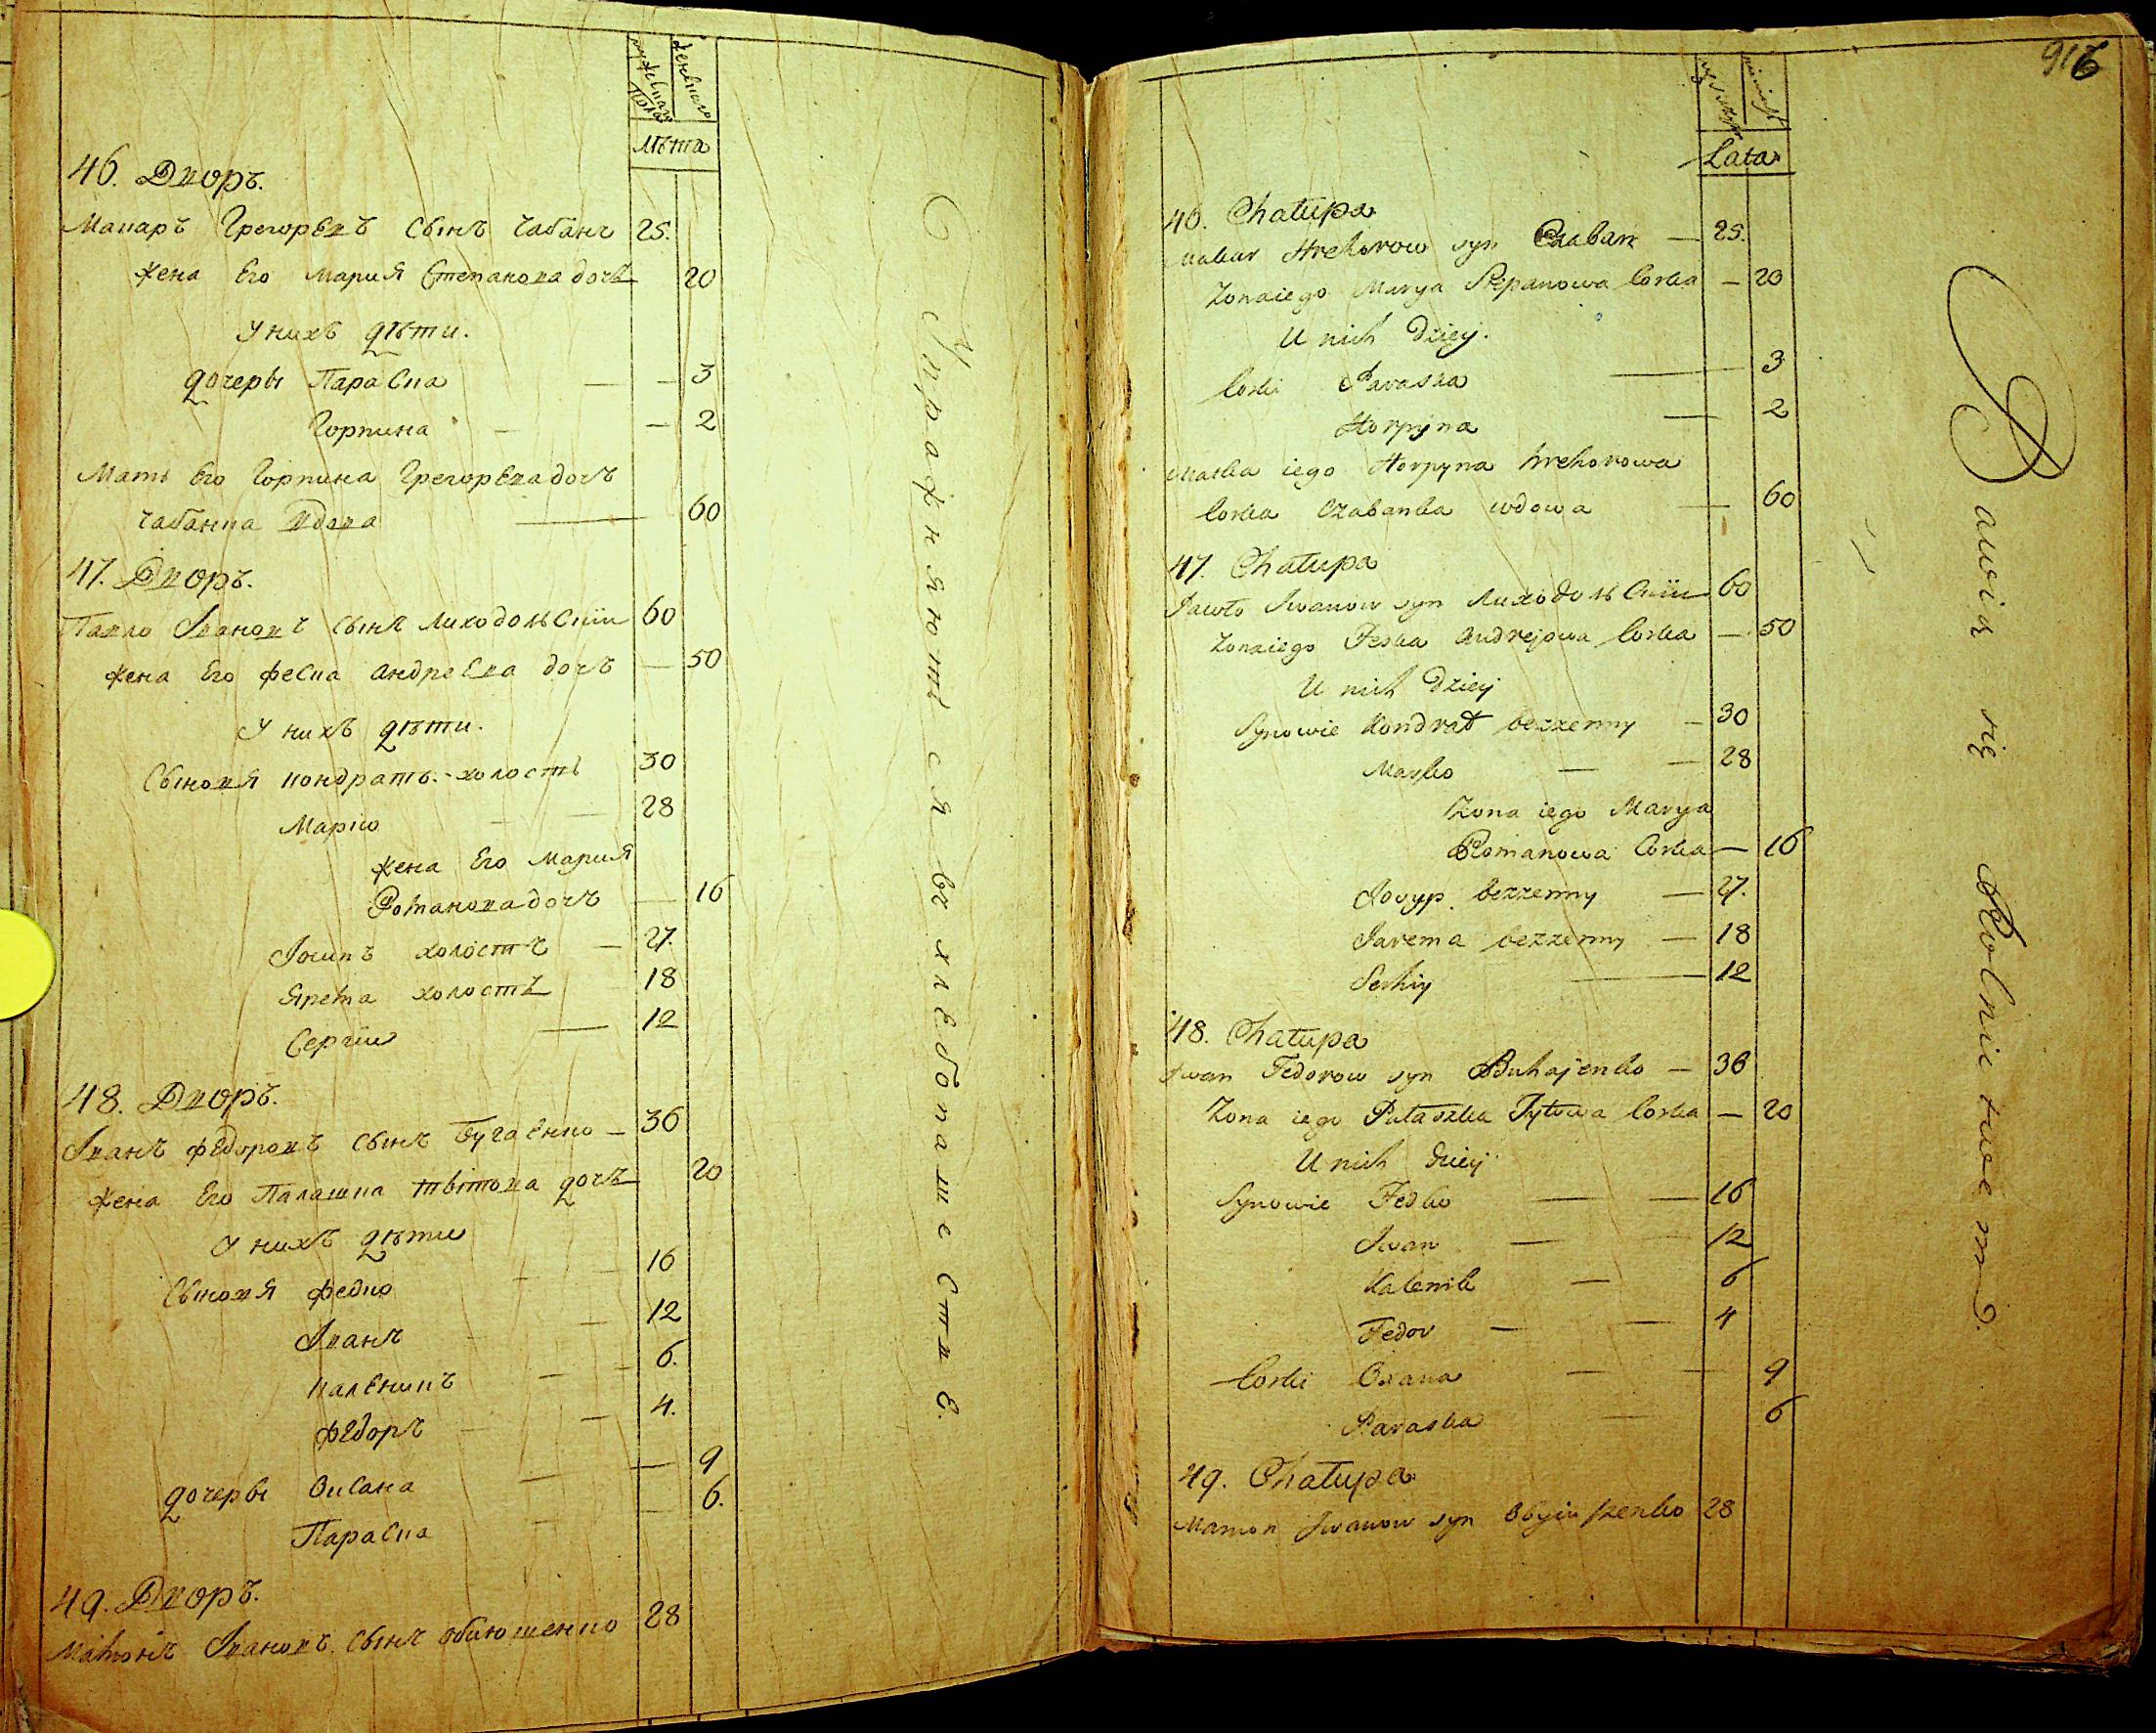 мужеска
Пола
женска
Лѣта
46. Дворъ.
Макаръ Грегорьевъ Сынъ Чабанъ 25.
жена Его Мария Степанова дочь 20
У нихъ дѣти.
дочеры Параска — — 3
Горпина — — 2
Мать Его Горпина Грегорьева дочъ
Чабанка вдова — 60
47. Дворъ.
Павло Івановъ Сынъ Лиходольскии 60
жена Его Феска Андреева дочъ — 50
У нихъ дѣти.
Сыновя Кондратъ - холостъ 30
Марко — — 28
жена Его Мария
Романова дочъ — 16
Іосипъ холостъ — 27.
Ярема холостъ 18
Сергіи — 12
48. Дворъ.
Іванъ Федоровъ Сынъ Бугаенко — 36
жена Его Палашка Тытова дочь 20
У нихъ дѣти
Сыновя Федко — — 16
Іванъ — — 12
Каленикъ — — 6.
Федоръ — — 4.
дочеры Оксана — — 9
Параска — — 6.
49. Дворъ.
Мамонъ Івановъ Сынъ Обиюшенко 28
Упражняются въ хлебопашестве.
916
Lata
46. Chałupa
Makar Hrehorow syn Czaban — 25.
Zona iego Marya Stepanowa Corka — 20
U nich dziey.
Corki Paraska — 3
Horpyna — 2
Matka iego Horpyna Hrehorowa
Corka Czabanka wdowa — 60
47. Chałupa
Pawło Iwanow syn Лиходольскии 60
Zona iego Feska Andrejowa Corka — 50
U nich dziey
Synowie Kondrat bezzenny — 30
Marko — — 28
Zona iego Marya
Romanowa Corka — 16
Josyp bezzenny — 27.
Jarema bezzenny — 18
Serhiy — 12
48. Chałupa
Iwan Fedorow syn Buhajenko — 36
Zona iego Pałaszka Tytowa Corka — 20
U nich dziey
Synowie Fedko — — 16
Iwan — — 12
Kalenik — 6
Fedor — — 4
Corki Oxana — — 9
Paraska — 6
49. Chałupa
Mamon Iwanow syn Obyiuszenko 28
Bawią się Rolnictwem.